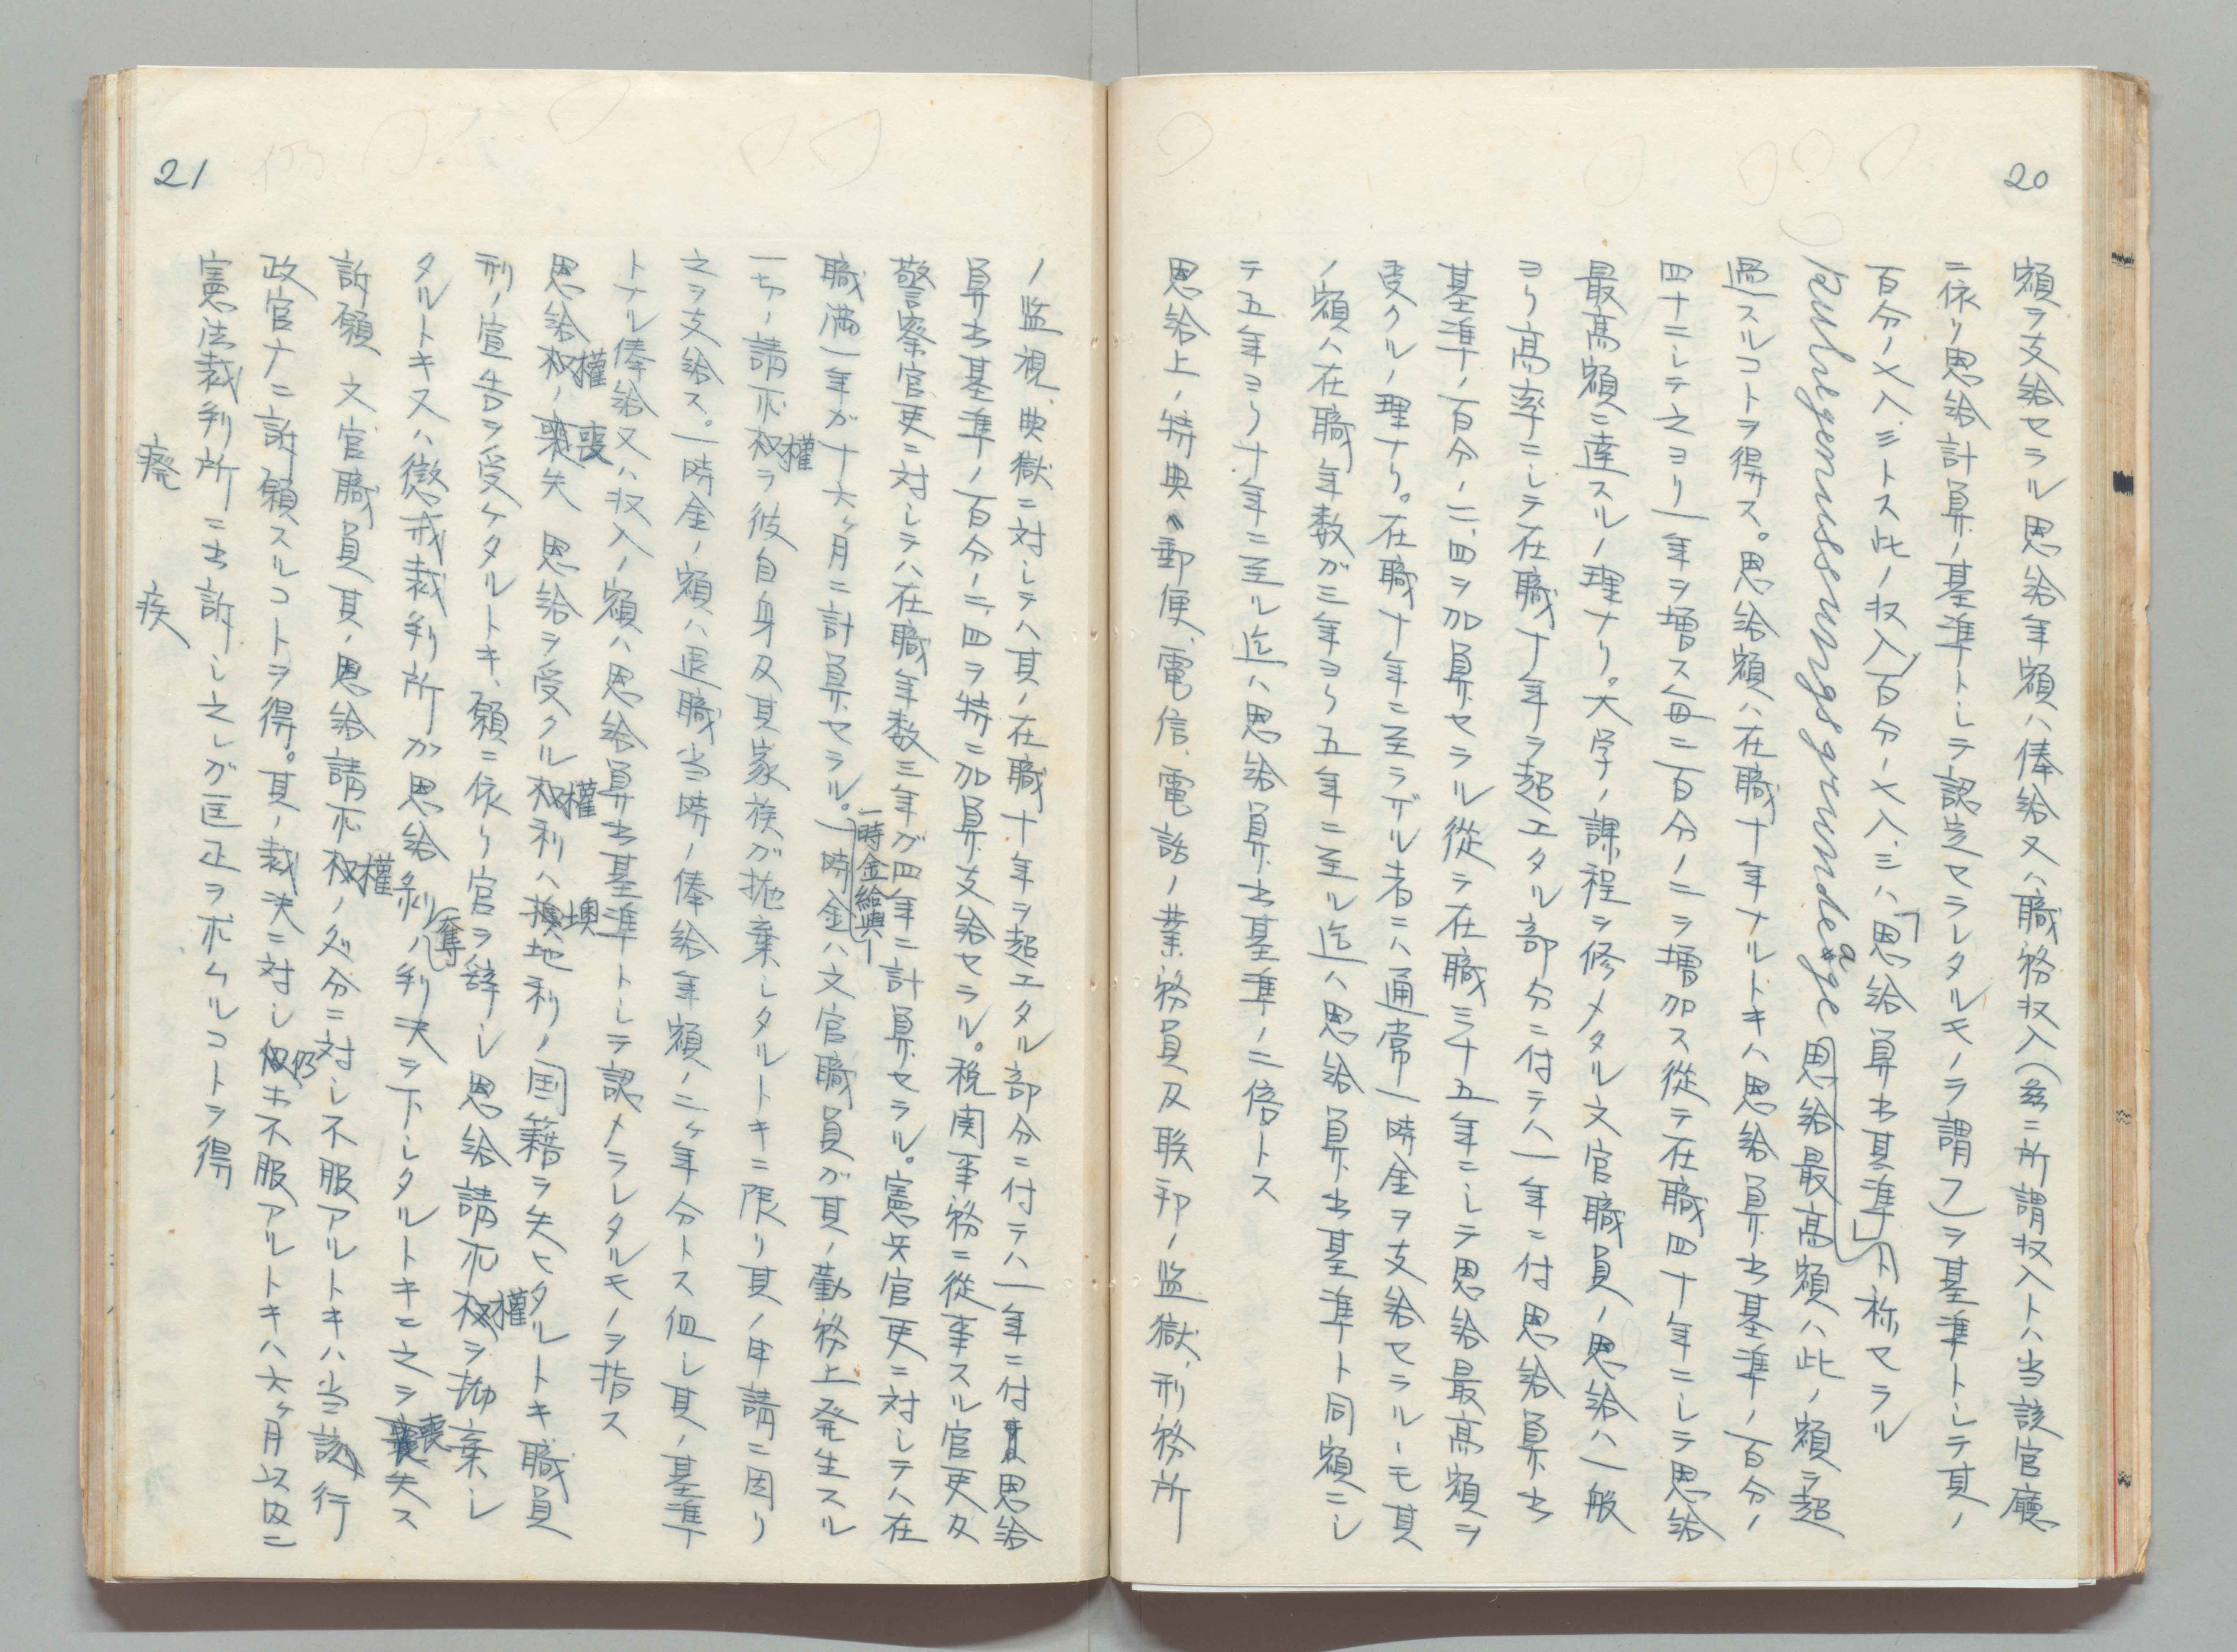 20
額ヲ支給セラル恩給年額ハ俸給又ハ職務収入(茲ニ所謂収入トハ当該官廳
ニ依リ恩給計算ノ基準トシテ認定セラレタルモノヲ謂フ)ヲ基準トシテ其ノ
百分ノ七八、三トス此ノ収入百分ノ七八、三ハ「恩給算出基準」ト称セラル
Ruhegenussemessungsgrundlage 恩給最高額ハ此ノ額ヲ超
過スルコトヲ得ス。恩給額ハ在職十年ナルトキハ恩給算出基準ノ百分ノ
四十ニシテ之ヨリ一年ヲ増ス毎ニ百分ノ二ヲ増加ス従テ在職四十年ニシテ恩給
最高額ニ達スルノ理ナリ。大学ノ課程ヲ修メタル文官職員ノ恩給ハ一般
ヨリ高率ニシテ在職十年ヲ超エタル部分ニ付テハ一年ニ付恩給算出
基準ノ百分ノ二、四ヲ加算セラル従テ在職三十五年ニシテ恩給最高額ヲ
受クルノ理ナリ。在職十年ニ至ラザル者ニハ通常一時金ヲ支給セラルヽモ其
ノ額ハ在職年数ガ三年ヨリ五年ニ至ル迄ハ恩給算出基準ト同額ニシ
テ五年ヨリ十年ニ至ル迄ハ恩給算出基準ノ二倍トス
恩給上ノ特典 郵便、電信、電話ノ業務員及聯邦ノ監獄、刑務所
21
ノ監視、典獄ニ対シテハ其ノ在職十年ヲ超エタル部分ニ付テハ一年ニ付恩給
算出基準ノ百分ノ二、四ヲ特ニ加算支給セラル。税関事務ニ従事スル官吏及
警察官吏ニ対シテハ在職年数三年ガ四年ニ計算セラル。憲兵官吏ニ対シテハ在
職満一年ガ十六ヶ月ニ計算セラル。一時金給與 一時金ハ文官職員ガ其ノ勤務上発生スル
一切ノ請求權ヲ彼自身及其家族ガ抛棄シタルトキニ限リ其ノ申請ニ因リ
之ヲ支給ス。一時金ノ額ハ退職当時ノ俸給年額ノ二ヶ年分トス但シ其ノ基準
トナル俸給又ハ収入ノ額ハ恩給算出基準トシテ認メラレタルモノヲ指ス
恩給權ノ喪失 恩給ヲ受クル權利ハ墺地利ノ国籍ヲ失ヒタルトキ、職員
刑ノ宣告ヲ受ケタルトキ、願ニ依リ官ヲ辞シ恩給請求權ヲ抛棄シ
タルトキ又ハ懲戒裁判所ガ恩給剝奪ノ判決ヲ下シタルトキニ之ヲ喪失ス
訴願 文官職員其ノ恩給請求權ノ処分ニ対シ不服アルトキハ当該行
政官庁ニ訴願スルコトヲ得。其ノ裁決ニ対シ仍ホ不服アルトキハ六ヶ月以内ニ
憲法裁判所ニ出訴シ之レガ匡正ヲ求ムルコトヲ得
癈 疾